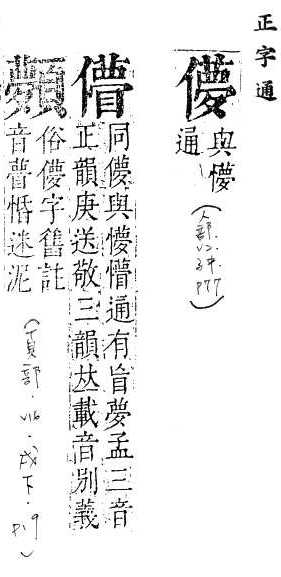 正字通
儚 與懜
通
(人部.V2.子中.P77)
㒱 同儚與懜懵通有旨夢孟三音
正韻庚送敬三韻𠀤載音別義
顭 俗儚字舊註
音瞢惛迷泥
(頁部.V16.戌下.P19)